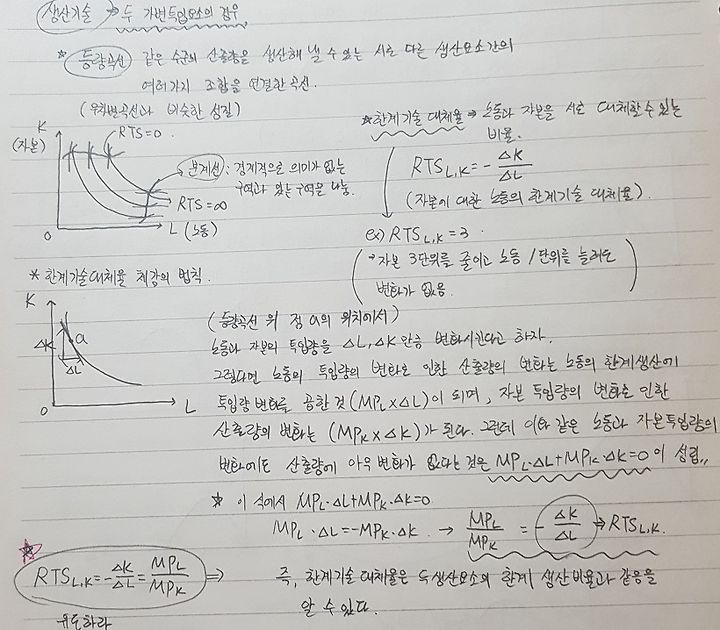 생산기술 → 두 가변투입요소의 경우
* 등량곡선 같은 수준의 산출량을 생산해 낼 수 있는 서로 다른 생산요소간의
여러가지 조합을 연결한 곡선.
(무차별곡선과 비슷한 성질)
K
(자본)
RTS=0
분계선 : 경제적으로 의미가 없는
구역과 있는 구역을 나눔.
RTS=∞
O
L (노동)
*한계기술대체율 → 노동과 자본을 서로 대체할 수 있는
비율.
RTS L,K = - ΔK/ΔL
(자본에 대한 노동의 한계기술 대체율).
ex) RTS L,K = 3
자본 3단위를 줄이고 노동 1단위를 늘려도
변화가 없음.
* 한계기술대체율 체감의 법칙.
K
a
ΔK
ΔL
O
L
(등량곡선 위 점 a의 위치에서)
노동과 자본의 투입량을 ΔL, ΔK 만큼 변화시킨다고 하자.
그렇다면 노동의 투입량의 변화로 인한 산출량의 변화는 노동의 한계생산에
투입량 변화를 곱한 것 (MPL x ΔL)이 되며, 자본 투입량의 변화로 인한
산출량의 변화는 (MPK x ΔK)가 된다. 그런데 이와 같은 노동과 자본투입량의
변화에도 산출량에 아무 변화가 없다는 것은 MPL·ΔL+MPK·ΔK=0 이 성립,,
* 이 식에서 MPL·ΔL+MPK·ΔK=0
MPL·ΔL=-MPK·ΔK → MPL/MPK = - ΔK/ΔL ⇒ RTS L,K.
RTS L,K = - ΔK/ΔL = MPL/MPK ⇒ 즉, 한계기술 대체율은 두 생산요소의 한계 생산비율과 같음을
알 수 있다.
유도하라